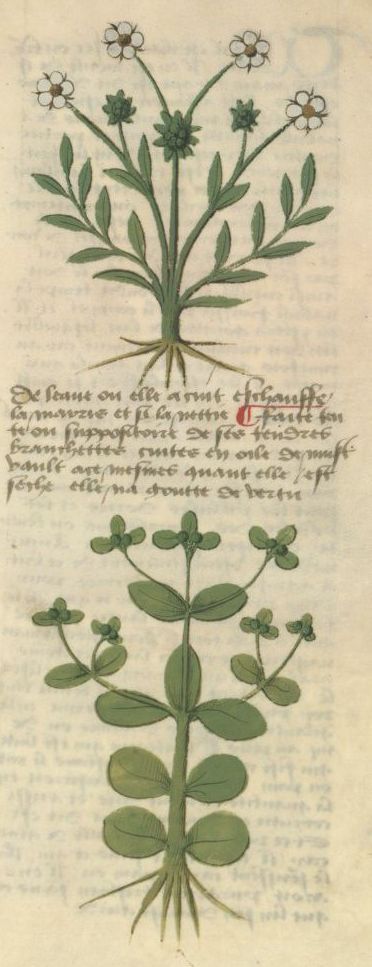 De leaue ou elle a cuit eschauffe
la mauris et si la nettie ¶ faite ten
te ou suppositoire de ses tendres
branchettes cuites en oile de must
vault a ce mesmes quant elle est
seche elle na goutte de vertu